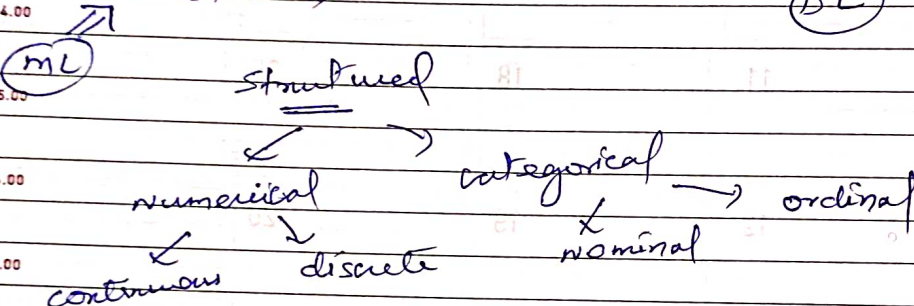 4.00
DL
mL
5.00
Structured
.00
Numerical categorical ordinal
nominal
.00
continuous discrete